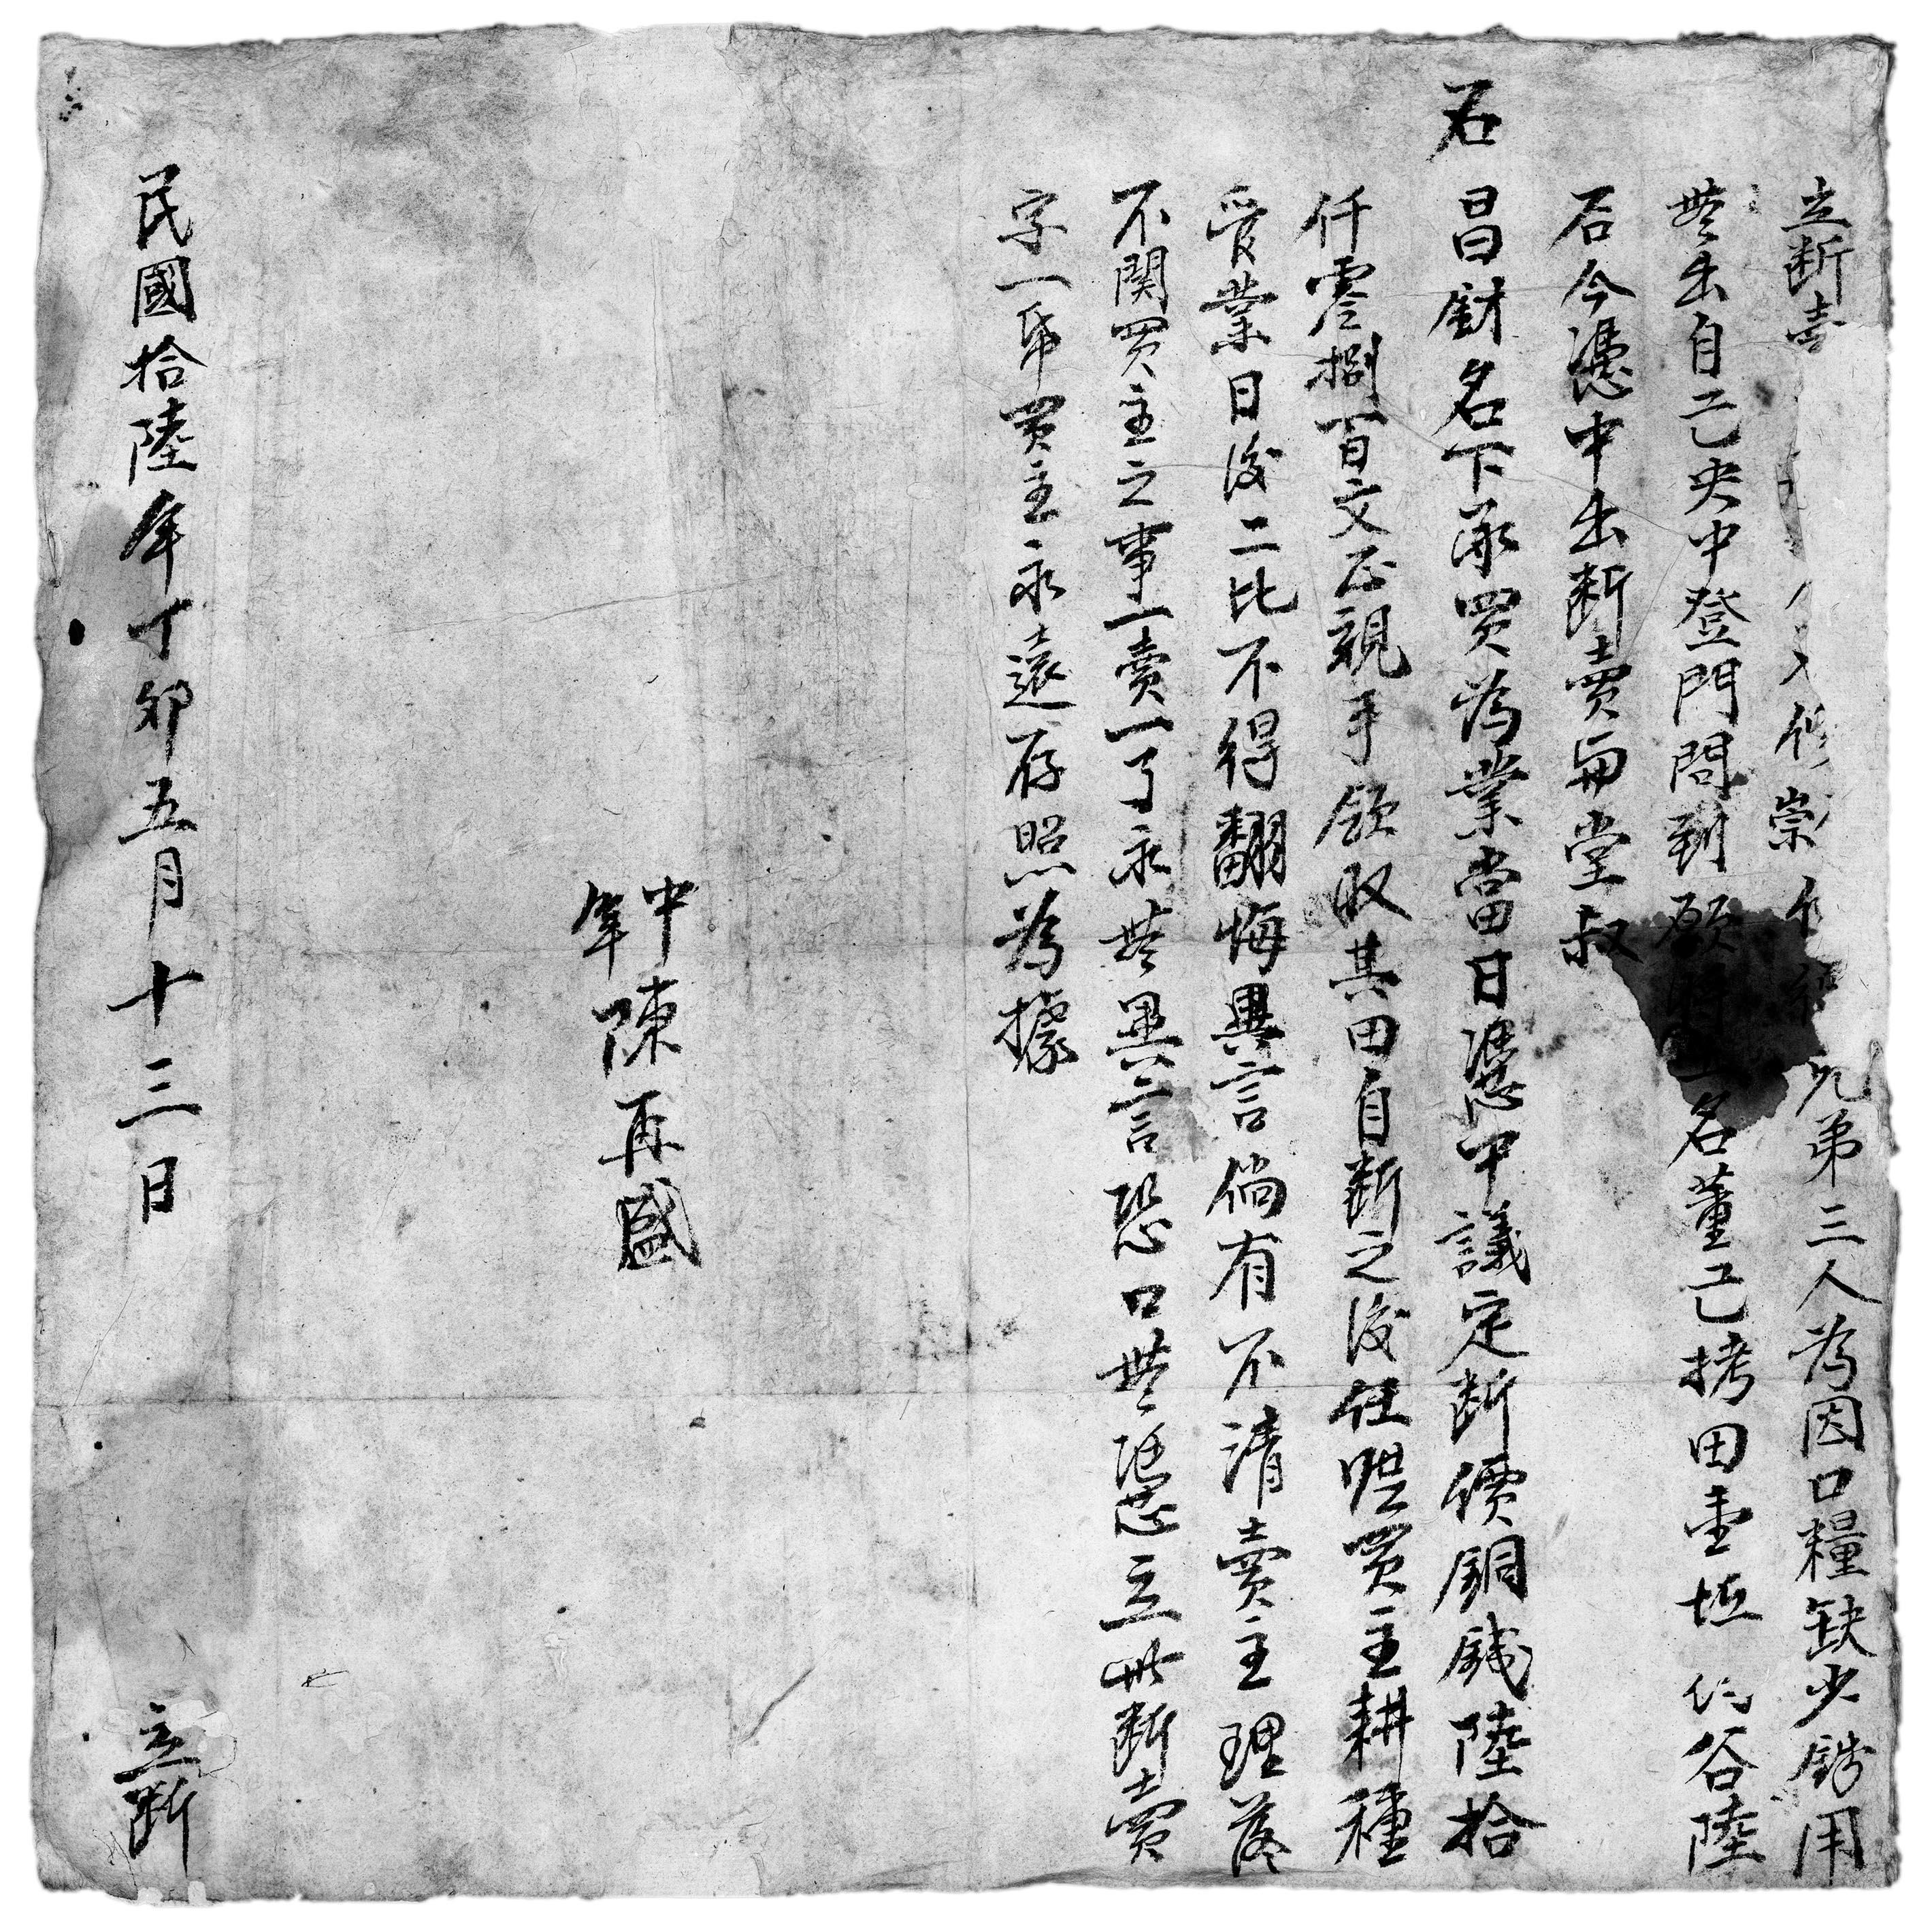 立断賣 修 崇 兄弟三人為因口糧缺少錢用
無出自己央中登門問到願 名董己拷田壹坵 约谷陸
石今憑中出断賣與堂叔
石昌財名下承買為業當日憑中議定断價銅錢陸拾
仟零捌百文正親手領收其田自断之後任凴買主耕種
管業日後二比不得翻悔異言倘有不清賣主理落
不関買主之事一賣一了永無異言恐口無憑立此断賣
字一帋買主永遠存照為據
中
筆陳再盛
民國拾陸年丁卯五月十三日 立断